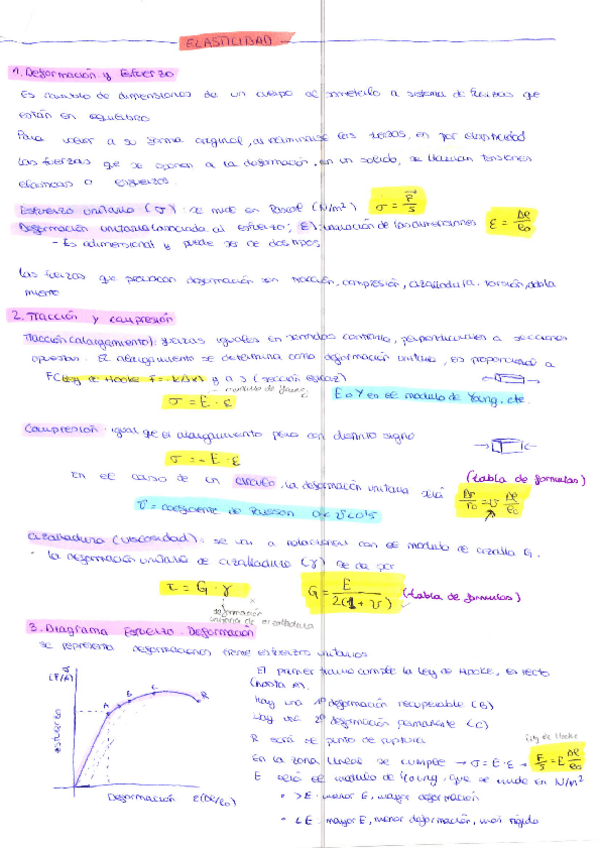 ELASTICIDAD
1. Deformación y Esfuerzo
Es cambio de dimensiones de un cuerpo al someterlo a sistema de fuerzas que
están en equilibrio
Para volver a su forma original, al eliminarse las fuerzas, es por elasticidad
Las fuerzas que se oponen a la deformación, en un sólido, se llaman tensiones
elásticas o esfuerzos
Esfuerzo unitario (σ): se mide en Pascal (N/m²) σ = F/S
Deformación unitaria (asociada al esfuerzo; ε): variación de las dimensiones ε = Δl/l₀
- Es adimensional y puede ser de dos tipos
Las fuerzas que provocan deformación son tracción, compresión, cizalladura, torsión, dobla
miento
2. Tracción y compresión
Tracción (alargamiento): fuerzas iguales en sentidos contrario, perpendiculares a secciones
opuestas. El alargamiento se determina como deformación unitaria, es proporcional a
F (Ley de Hooke F = k Δx) y a S (sección eficaz)
módulo de Young
σ = E · ε E o Y es el módulo de Young, cte.
Compresión: igual que el alargamiento pero con distinto signo
σ = - E · ε
(tabla de formulas)
En el caso de un círculo, la deformación unitaria será Δr/r₀ = υ Δl/l₀
υ = coeficiente de Poisson 0<υ<0'5
Cizalladura (viscosidad): se va a relacionar con el módulo de cizalla G.
· La deformación unitaria de cizalladura (γ) se da por
τ = G · γ G = E / 2(1 + υ) (tabla de formulas)
deformación
unitaria de cizalladura
3. Diagrama Esfuerzo - Deformación
Se representa deformaciones frente esfuerzos unitarios
(F/A)
esfuerzo
A
B
C
R
Deformación ε(Δl/l₀)
El primer tramo cumple la Ley de Hooke, es recto
(hasta A).
Hay una 1ª deformación recuperable (B)
Hay una 2ª deformación permanente (C)
R será el punto de ruptura
Ley de Hooke
En la zona lineal se cumple → σ = E · ε → F/S = E Δl/l₀
E será el módulo de Young, que se mide en N/m²
· >E: menor E, mayor deformación
· <E: mayor E, menor deformación, más rígido